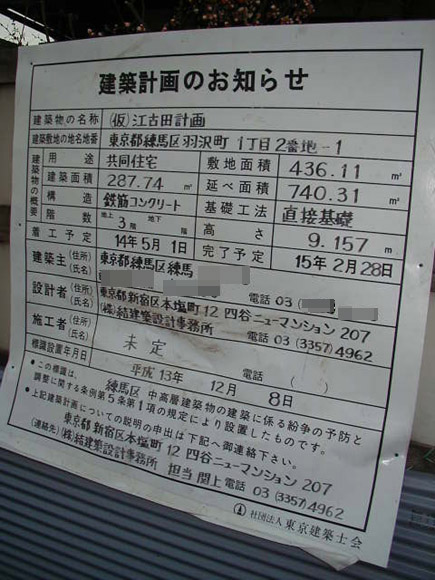 建築計画のお知らせ
建築物の名称 (仮)江古田計画
建築敷地の地名地番 東京都練馬区羽沢町 1丁目2番地-1
建築物の概要
用途 共同住宅 敷地面積 436.11 ㎡
建築面積 287.74 ㎡ 延べ面積 740.31 ㎡
構造 鉄筋コンクリート 基礎工法 直接基礎
階数 地上 3階 地下 階 高さ 9.157 m
着工予定 14年5月1日 完了予定 15年2月28日
建築主(住所)(氏名) 東京都練馬区練馬
電話 03(
設計者(住所)(氏名) 東京都新宿区本塩町12 四谷ニューマンション207
(株)結建築設計事務所 電話 03(3357)4962
施工者(住所)(氏名) 未定
電話 ( )
標識設置年月日 平成13年 12月 8日
●この標識は、練馬区 中高層建築物の建築に係る紛争の予防と
調整に関する条例第5条第1項の規定により設置したものです。
●上記建築計画についての説明の申出は下記へ御連絡下さい。
東京都新宿区本塩町12 四谷ニューマンション207
(連絡先)(株)結建築設計事務所 担当 関上 電話 03(3357)4962
社団法人 東京建築士会